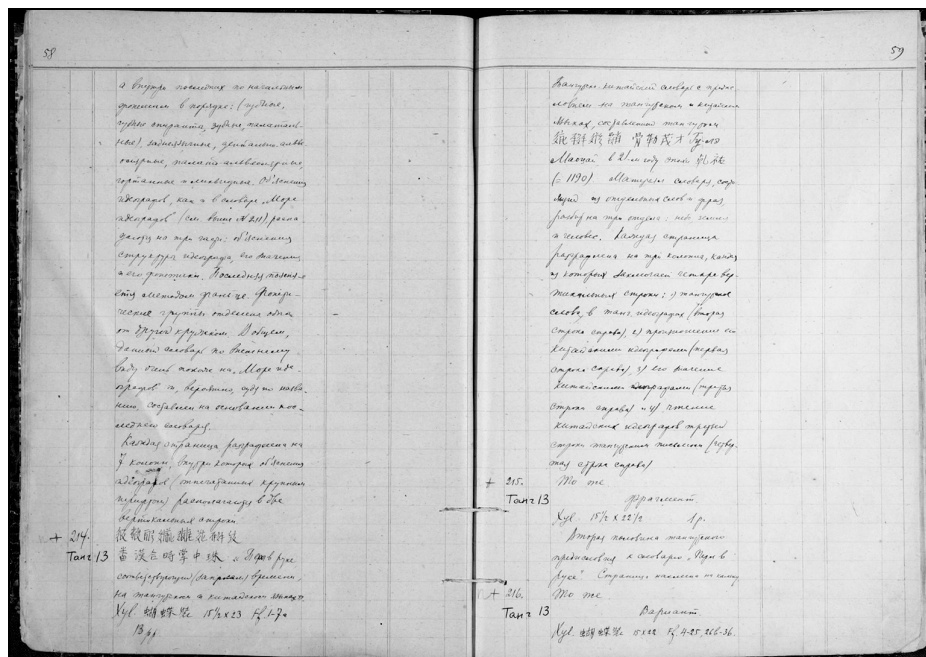 58
а внутри последних по начальным
фонемам в порядке: (губные,
ные), заднеязычные,
гортанные и
идеограф, как и в словаре „Море
идеографов" (см. выше № 211)
на три части: объяснения
структуры идеографа, его значения
и его фонетики. Последняя
методом фань це. Фонети-
ческие группы отделены одна
от другой кружком. В общем,
данный словарь по внешнему
виду очень похож на „Море иде-
ографов" и, вероятно, судя по назва-
нию, составлен на основании пос-
леднего словаря.
Каждая страница разграфлена на
7 колонн, внутри которых объяснения
идеографов (отпечатанных крупным
шрифтом) располагаются в две
вертикальные строки
+ 214.
Танг 13 番漢合時掌中珠 „Перл в руке
соответствующий (запросам) времени,
на тангутском и китайском языках"
Xyl. 蝴蝶装 15½ x 23 Ff. 1-7a
13 pp
59
Тангутско-китайский словарь с преди-
словием на тангутском и китайском
языках, составленный тангутом
骨勒茂才 Гу-лэ
Маоцай в 21-м году эпохи 乾祐
(= 1190). Материал словаря, состо-
ящий из отдельных слов и фраз,
разбит на три отдела: небо земля
и человек. Каждая страница
разграфлена на три колонки, каждая
из которых заключает четыре вер-
тикальных строки: 1) тангутское
слово в танг. идеографах (вторая
строка справа), 2) произношение его
китайскими идеографами (первая
строка справа), 3) его значение
китайскими идеографами (третья
строка справа) и 4) чтение
китайских идеографов третьей
строки тангутскими письменами (четвер-
тая строка справа)
+ 215. То же
Танг 13 Фрагмент.
Xyl. 15½ x 22½ 1 p.
Вторая половина тангутского
предисловия к словарю „Перл в
руке" Страница наклеена на
+ 216. То же
Танг 13 Вариант
Xyl. 蝴蝶装 15 x 22 Ff. 4-25, 26b-36.